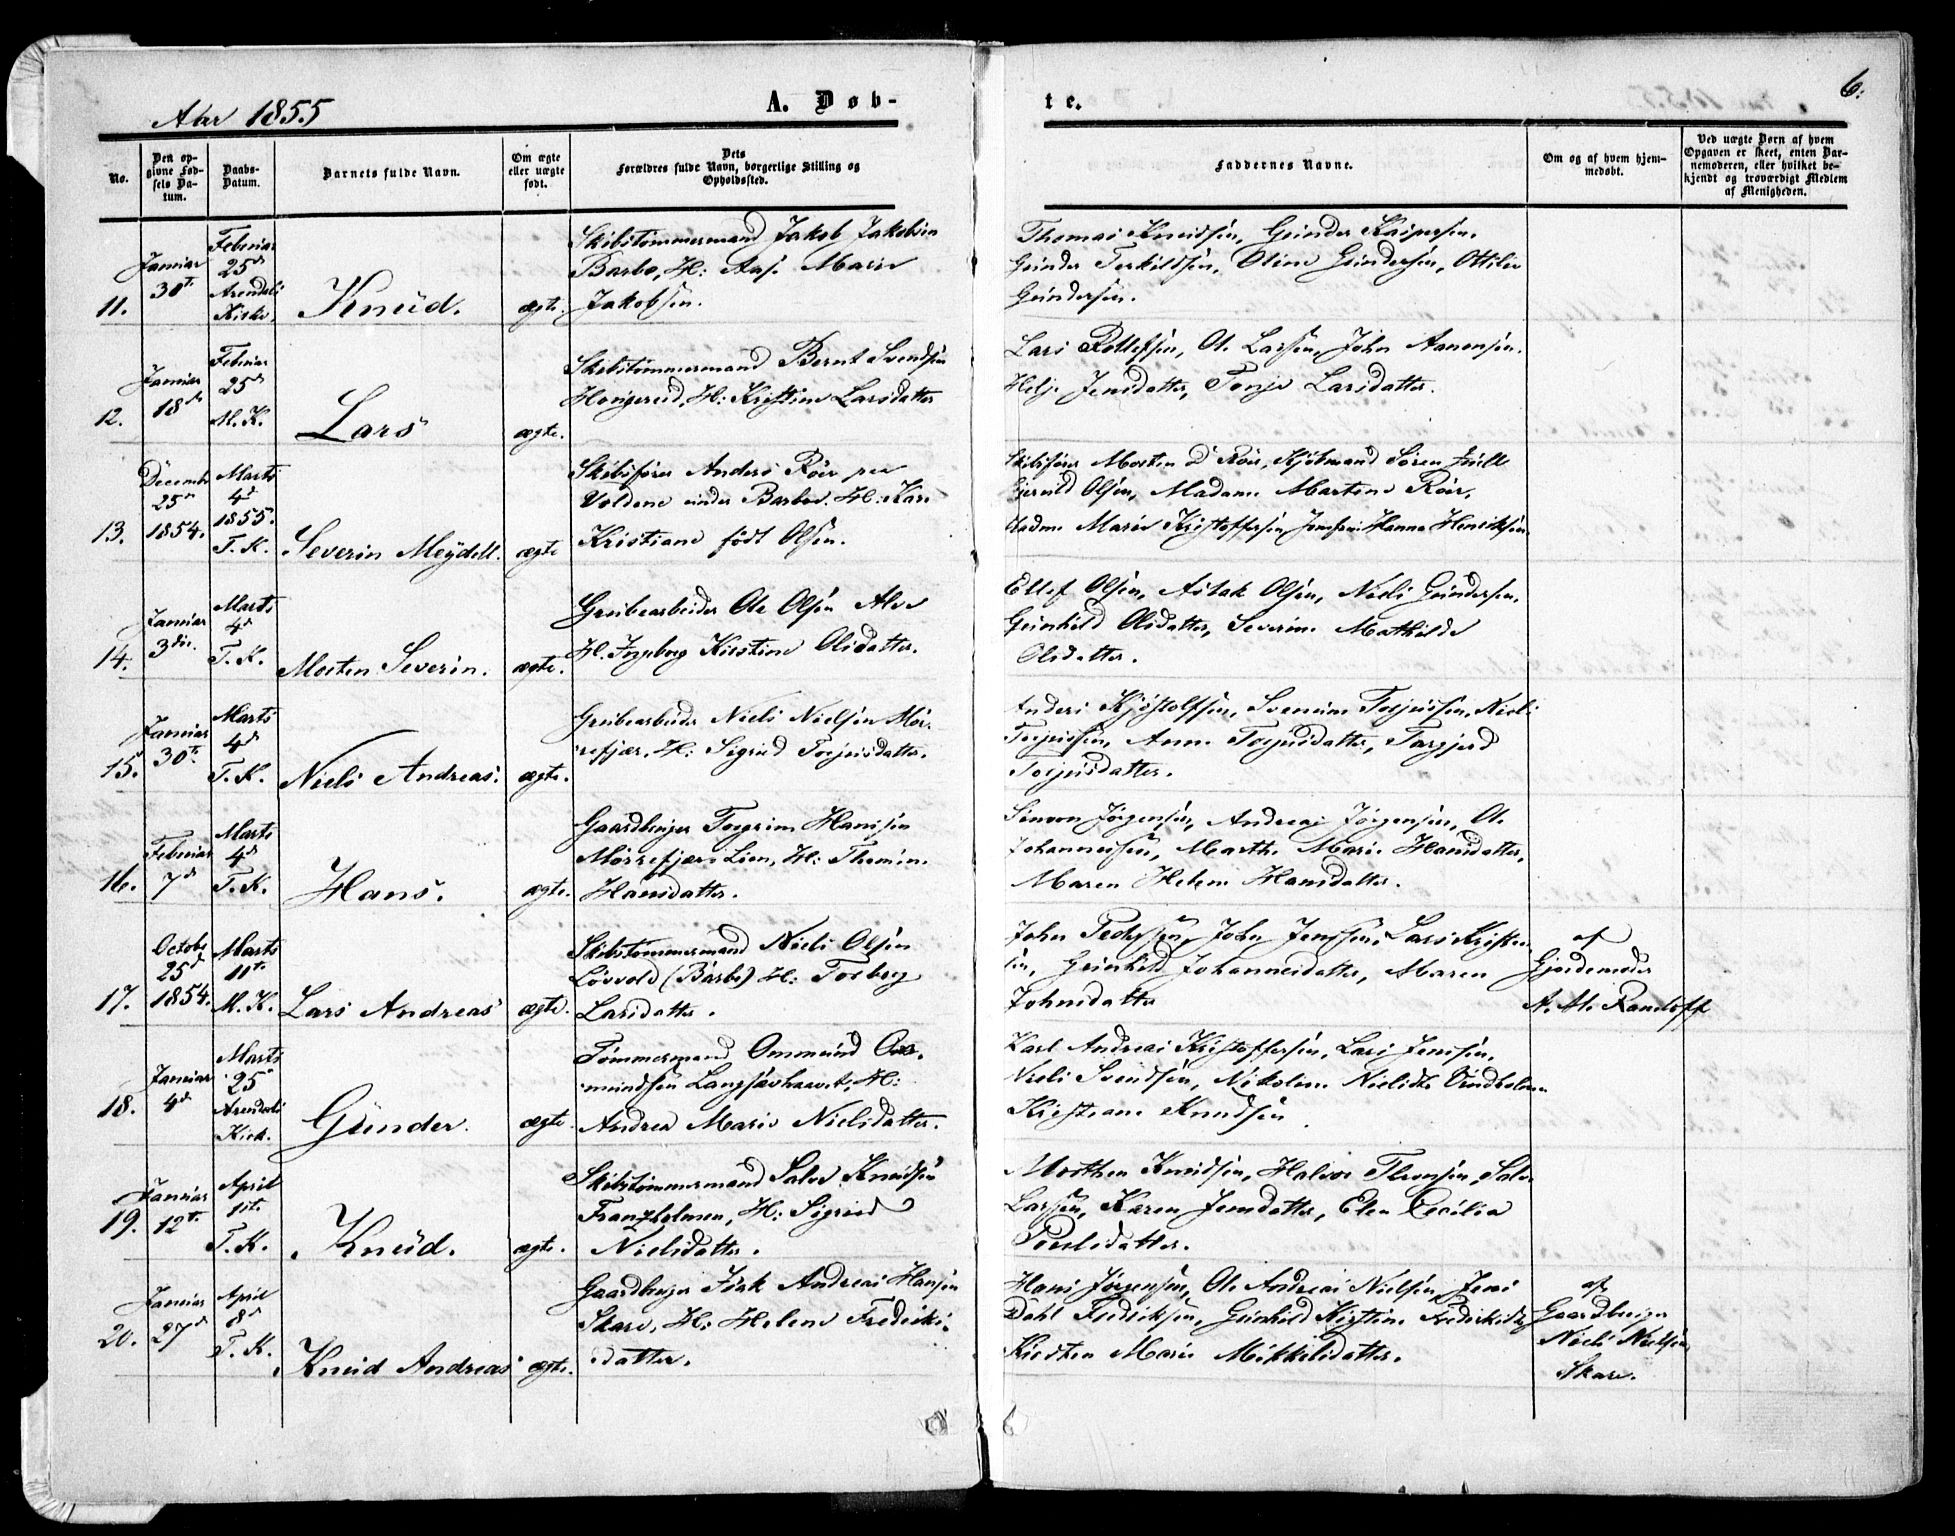 Aar 1855
A. Døb-
te.
6.
No.
Den op-
givne Fød-
sels Da-
tum.
Daabs-
Datum.
Barnets fulde Navn.
Om ægte
eller uægte
født.
Dets
Forældres fulde Navn, borgerlige Stilling og
Opholdssted.
Faddernes Navne.
Om og af hvem hjem-
medøbt.
Ved uægte Børn af hvem
Opgaven er skeet, enten Bar-
nemoderen, eller hvilket be-
kjendt og troværdigt Medlem
af Menigheden.
11.
Januar
30te
Februar
25de
Arendals
Kirke.
Knud.
ægte.
Skibstømmermand Jakob Jakobsen
Barbo, H: Aase Marie
Jakobsen.
Thomas Knudsen, Gunder Kaspersen,
Gunder Terkildsen, Oline Gundersen, Ottilie
Gundersen.
12.
Januar
18de
Februar
25de
M. K.
Lars
ægte.
Skibstømmermand Bernt Svendsen
Hongereid, H: Kristine Larsdatter
Lars Rollefsen, Ole Larsen, John Aanensen.
Helje Jensdatter, Tonje Larsdatter.
13.
Decembr
25de
1854.
Marts
4de
1855.
T. K.
Severin Meydell.
ægte
Skibsfører Anders Röer paa
Voldene under Barboe. H: Karen
Kristiane født Olsen.
Skibsfører Morten D Röer, Kjøbmand Søren
Olsen, Madame Martine Röer,
Madme Marie Kristoffersen, Jomfru Hanna Henriksen
14.
Januar
3die.
Marts
4de
T. K.
Morten Severin.
ægte.
Grubearbeider Ole Olsen Alve
H. Ingeborg Kirstine Olsdatter.
Ellef Olsen, Aslak Olsen, Niels Gundersen,
Gunhild Olsdatter, Severine Mathilde
Olsdatter.
15.
Januar
30te
Marts
4de
T. K.
Niels Andreas.
ægte.
Grubearbeider Niels Nielsen Mør-
refjær, H: Sigrid Torjusdatter.
Anders Kjøstolfsen, Svenum Torjussen, Niels
Torjussen, Anne Torjusdatter, Torgjerd
Torjusdatter.
16.
Februar
7de
Marts
4de
T. K.
Hans.
ægte.
Gaardbruger Torgrim Hansen
Mørrefjær Lien, H: Thomine
Hansdatter.
Simon Jørgensen, Andreas Jørgensen, Ole
Johannessen, Marthe Marie Hansdatter,
Maren Helene Hansdatter.
17.
Octobr
25de
1854.
Marts
11te
M. K.
Lars Andreas
ægte.
Skibstømmermand Niels Olsen
Løvvold (Barbo) H: Torborg
Larsdatter.
John Pedersen, John Jenssen, Lars Kristen-
sen, Gunhild Johannesdatter, Maren
Johnsdatter
af
Gjordemoder
A. M. Randoff
18.
Januar
4de
Marts
25de
Arendals
Kirk.
Gunder.
ægte.
Tømmermand Ommund Om-
mundsen Langsævhavet, H:
Andrea Marie Nielsdatter.
Karl Andreas Kristoffersen, Lars Jensen,
Niels Svendsen, Nikoline Nielsdtr Vindholmen
Kristiane Knudsen
19.
Januar
12te
April
1ste
T. K.
Knud.
ægte.
Skibstømmermand Salve Knudsen
Franzholmen, H: Sigrid
Nielsdatter.
Morthen Knudsen, Halvor Thronsen, Salve
Larsen, Karen Jensdatter, Elen Cecilia
Poulsdatter.
20.
Januar
27de
April
8de
T. K.
Knud Andreas
ægte.
Gaardbruger Isak Andreas Hansen
Skare, H: Helene Fredriks-
datter.
Hans Jørgensen, Ole Andreas Nielsen, Jens
Dahl Fredriksen, Gunhild Kirstine Fredriksdtr
Kirsten Marie Mikkelsdatter.
af
Gaardbruger
Niels Nielsen
Skare.